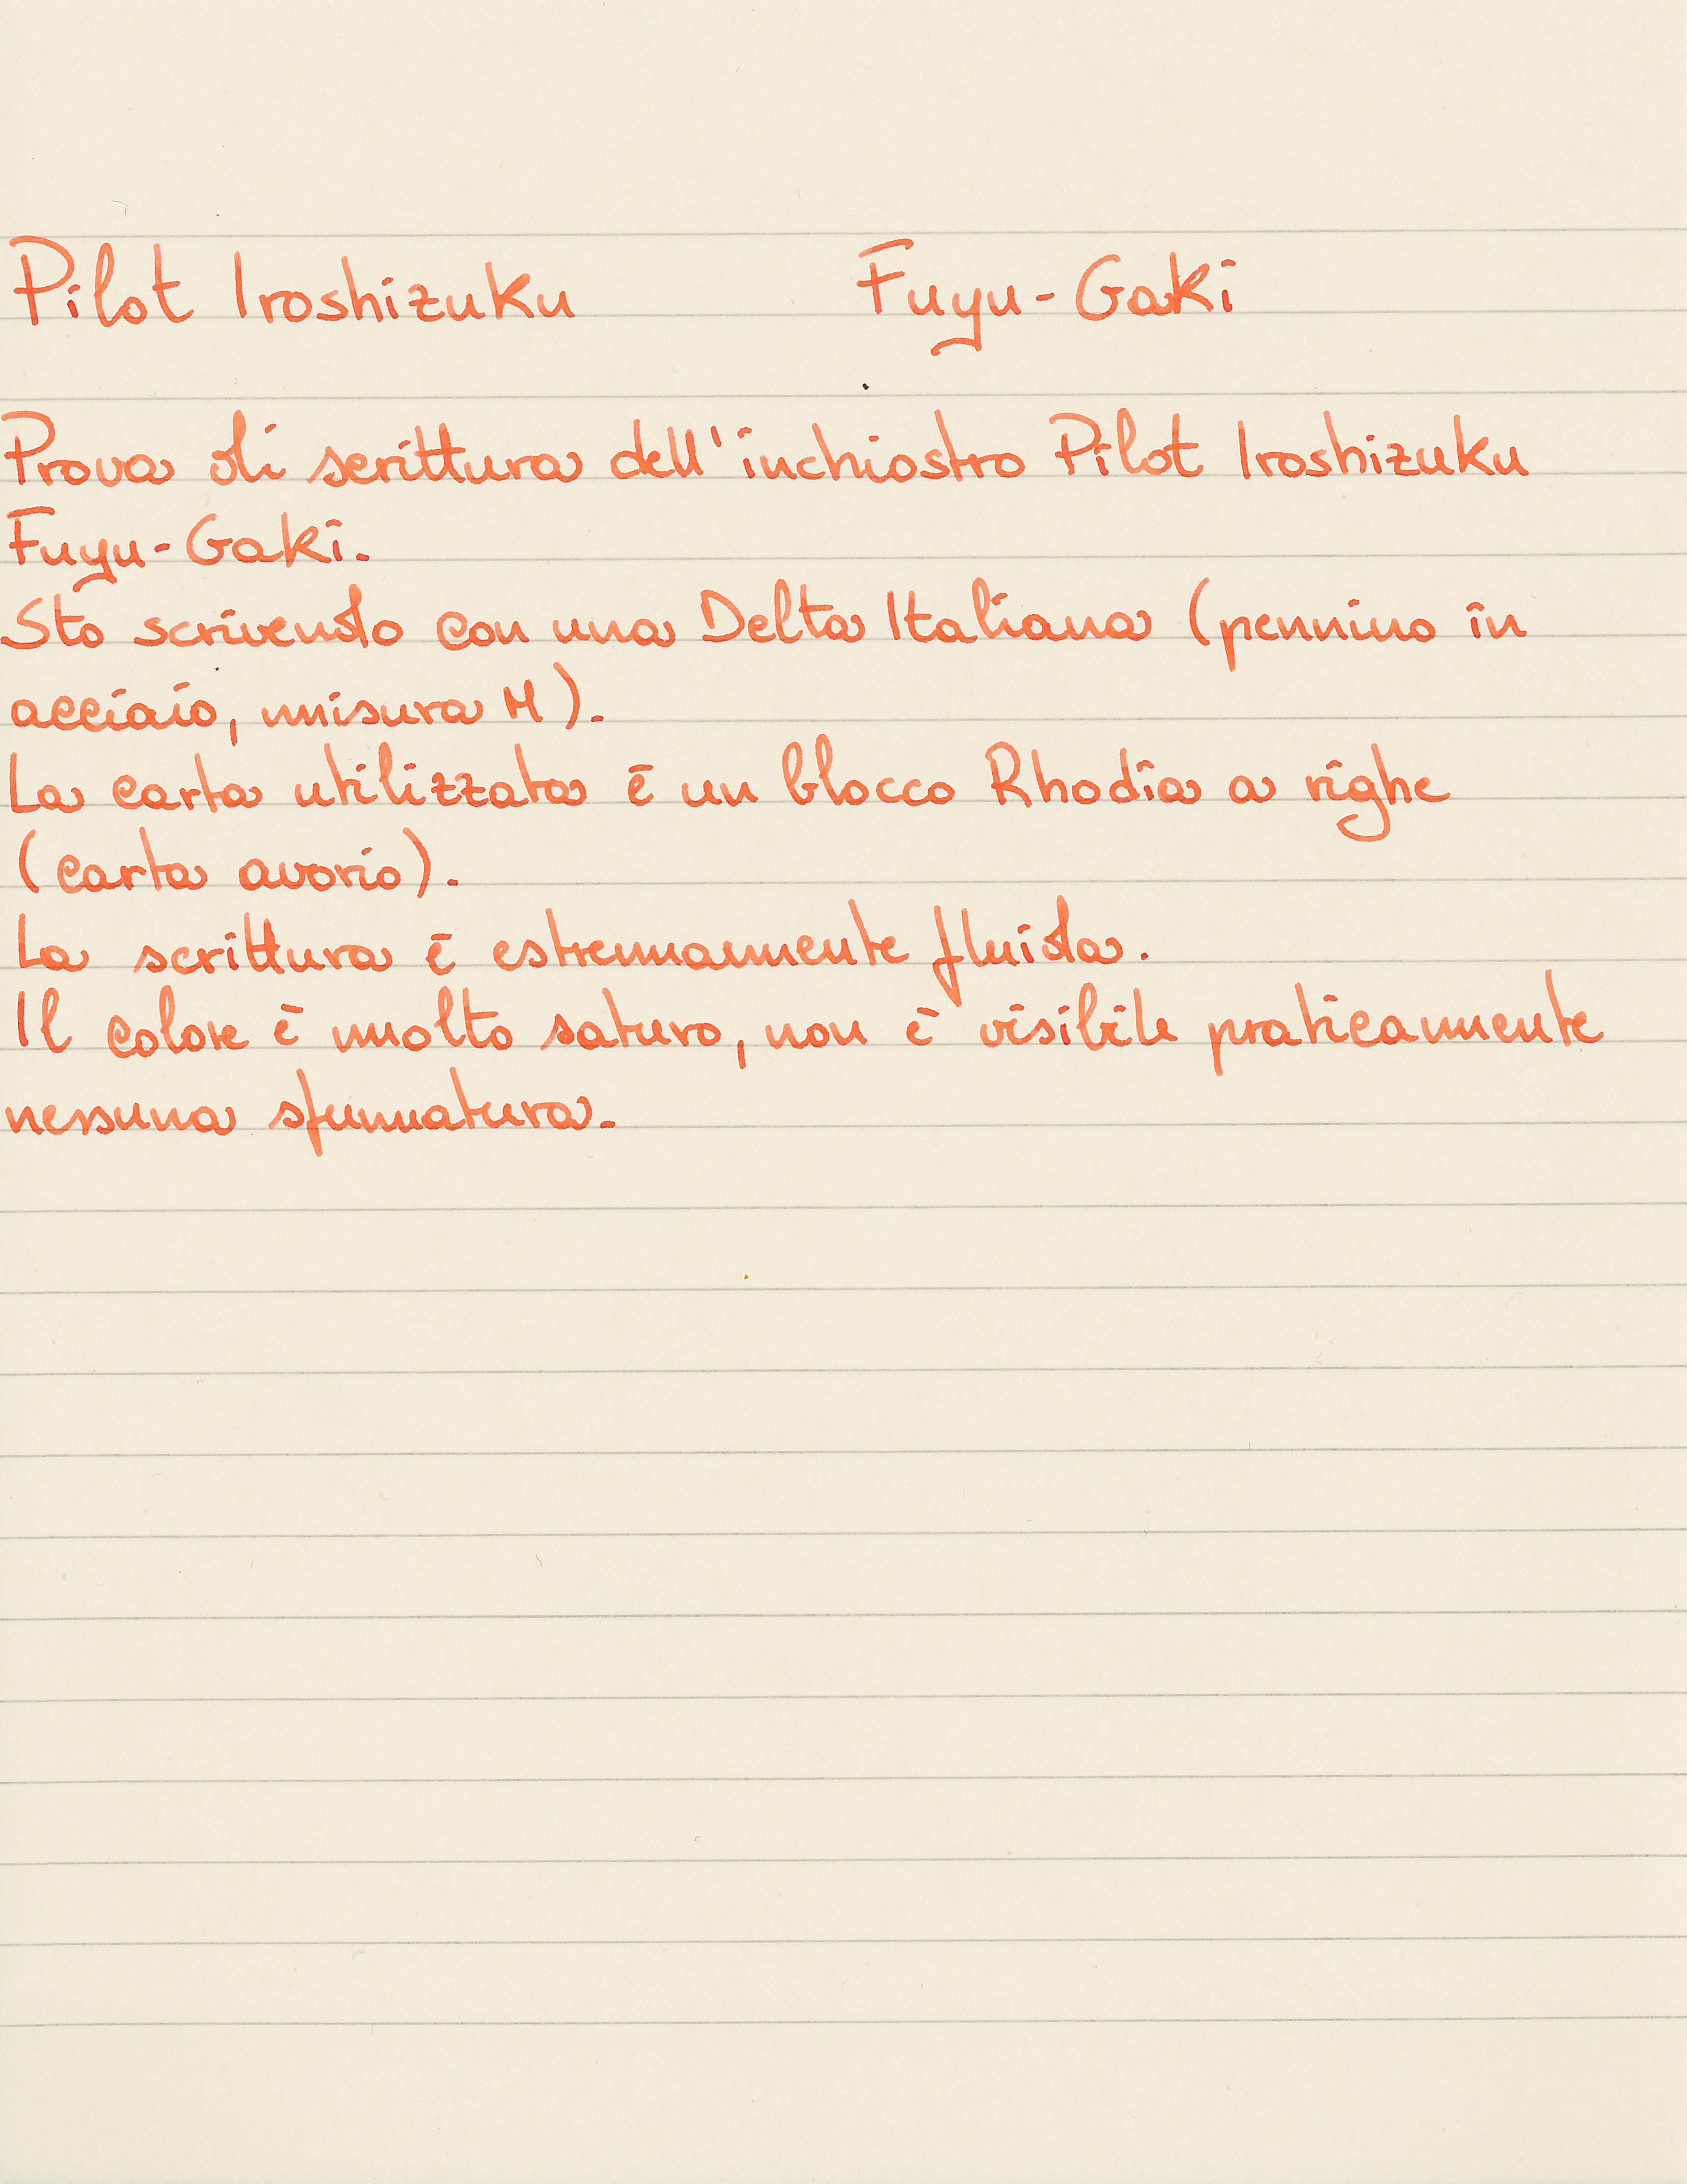 Pilot Iroshizuku Fuyu-Gaki
Prova di scrittura dell'inchiostro Pilot Iroshizuku
Fuyu-Gaki.
Sto scrivendo con una Delta Italiana (pennino in
acciaio, misura M).
La carta utilizzata è un blocco Rhodia a righe
(carta avorio).
La scrittura è estremamente fluida.
Il colore è molto saturo, non è visibile praticamente
nessuna sfumatura.